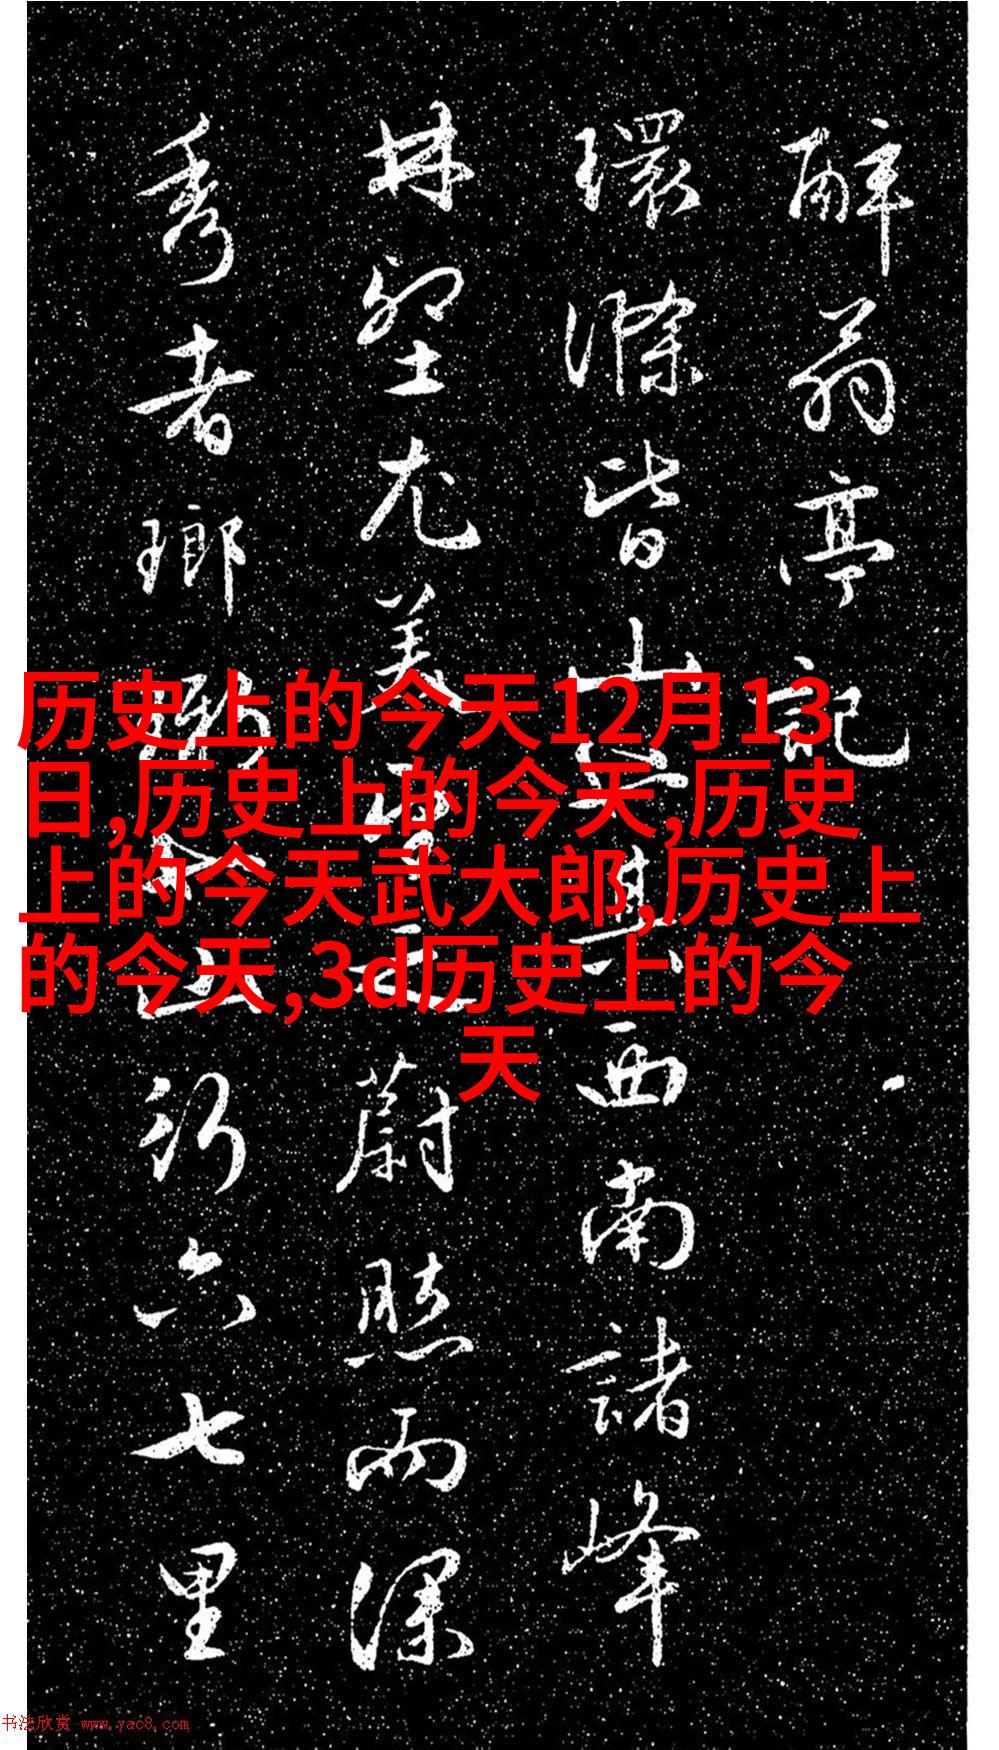 醉翁亭記
環滁皆山也其西南諸峰
林壑尤美望之蔚然而深
秀者瑯琊也山行六七里
历史上的今天12月13
日,历史上的今天,历史
上的今天武大郎,历史上
的今天,3d历史上的今
天
书法欣赏 www.yac8.com